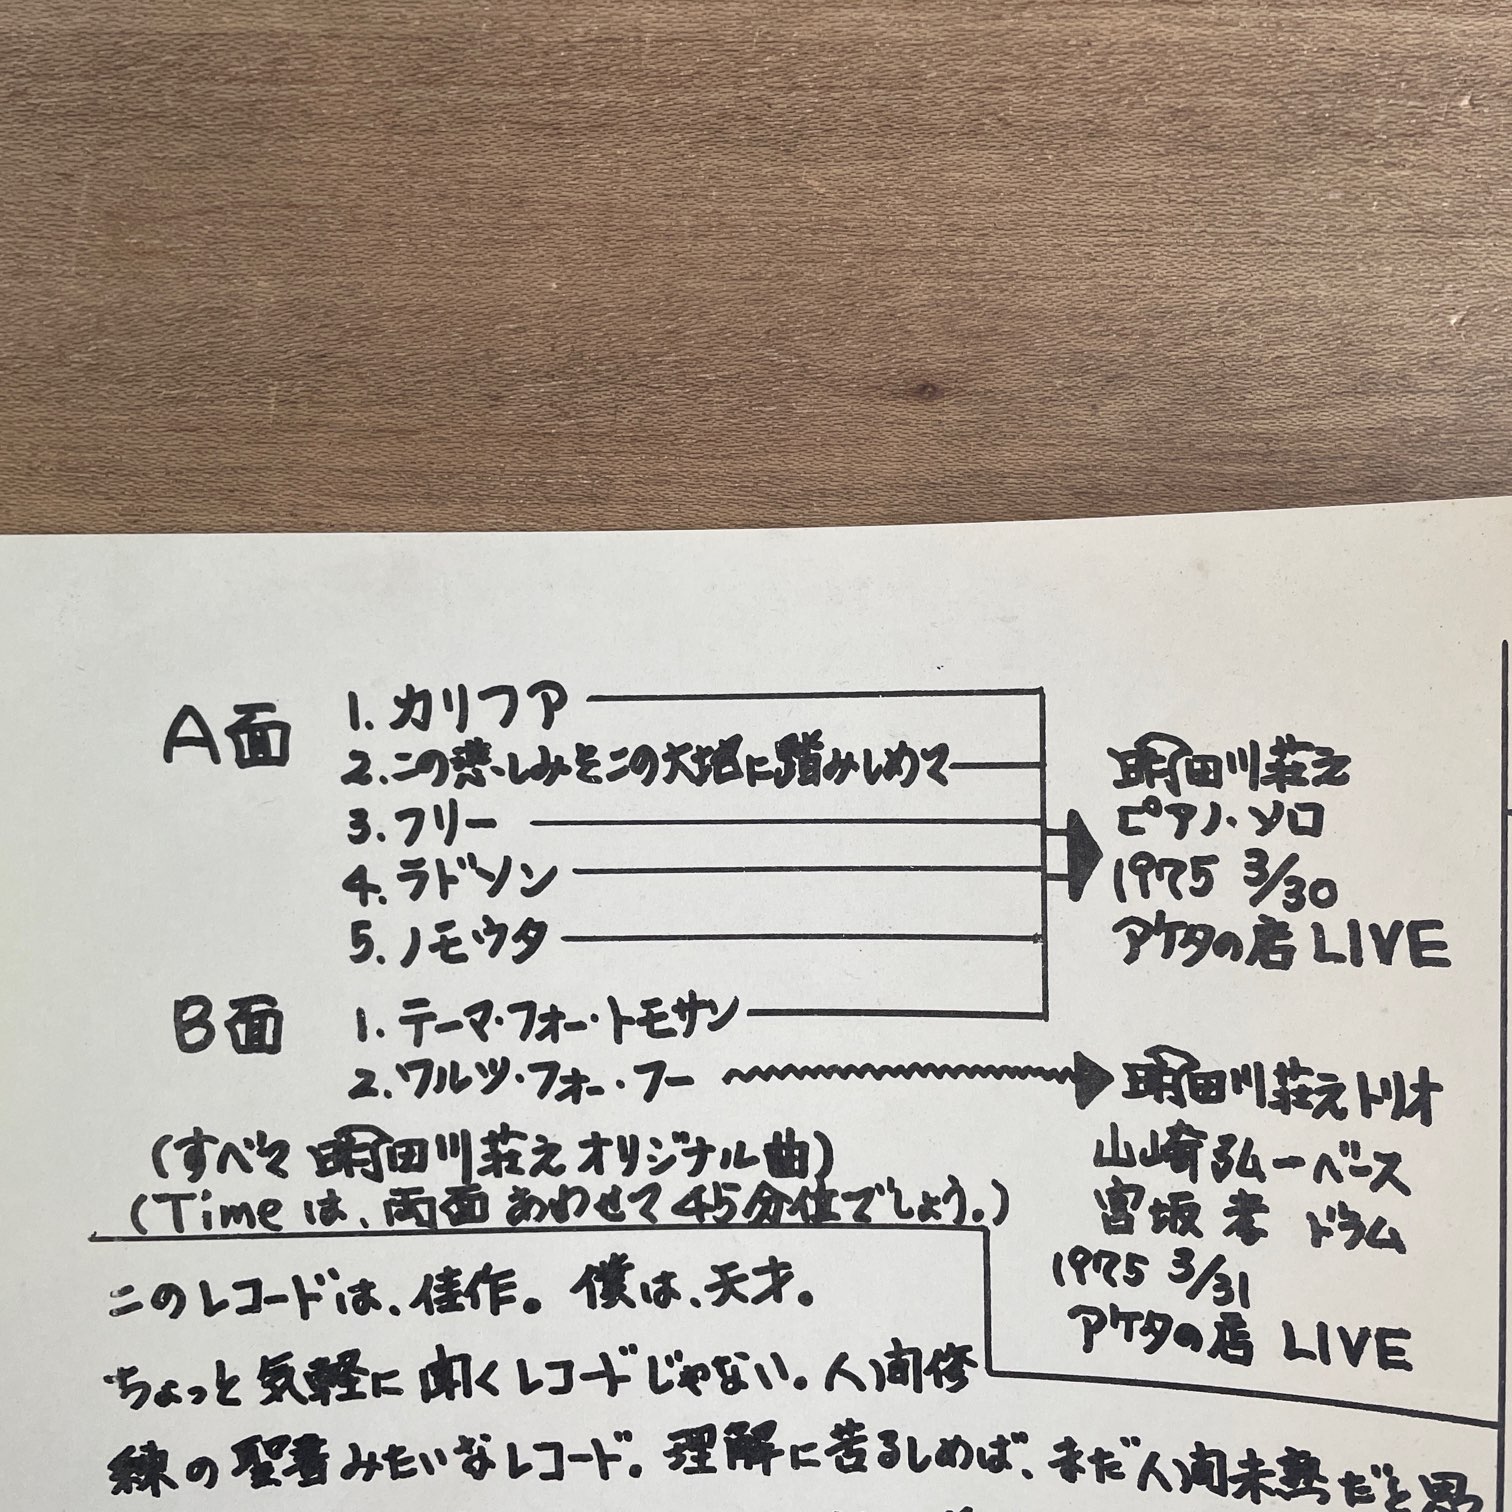 A面
1. カリフア
2. この悲しみをこの大地に踏みしめて
3. フリー
4. ラドソン
5. ノモウタ
明田川荘之
ピアノ・ソロ
1975 3/30
アケタの店 LIVE
B面
1. テーマ・フォー・トモサン
2. ワルツ・フォー・フー
明田川荘之トリオ
山崎弘一ベース
宮坂 孝 ドラム
1975 3/31
アケタの店 LIVE
(すべて 明田川荘之オリジナル曲)
(Timeは、両面あわせて45分位でしょう。)
このレコードは、佳作。僕は、天才。
ちょっと気軽に聞くレコードじゃない。人間修
練の聖書みたいなレコード。理解に苦るしめば、まだ人間未熟だと思